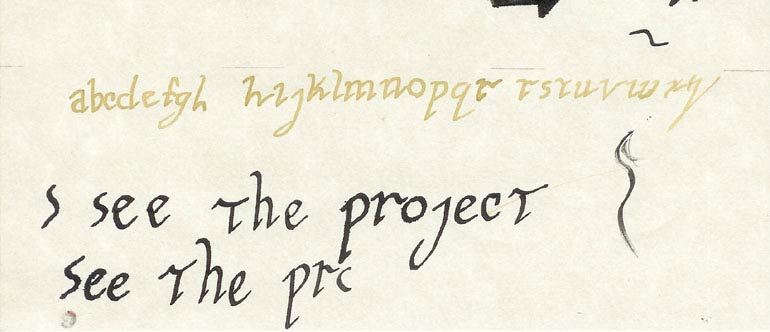 abcdefgh hijklmnopqr rstuvwxy
s see the project
see the pro